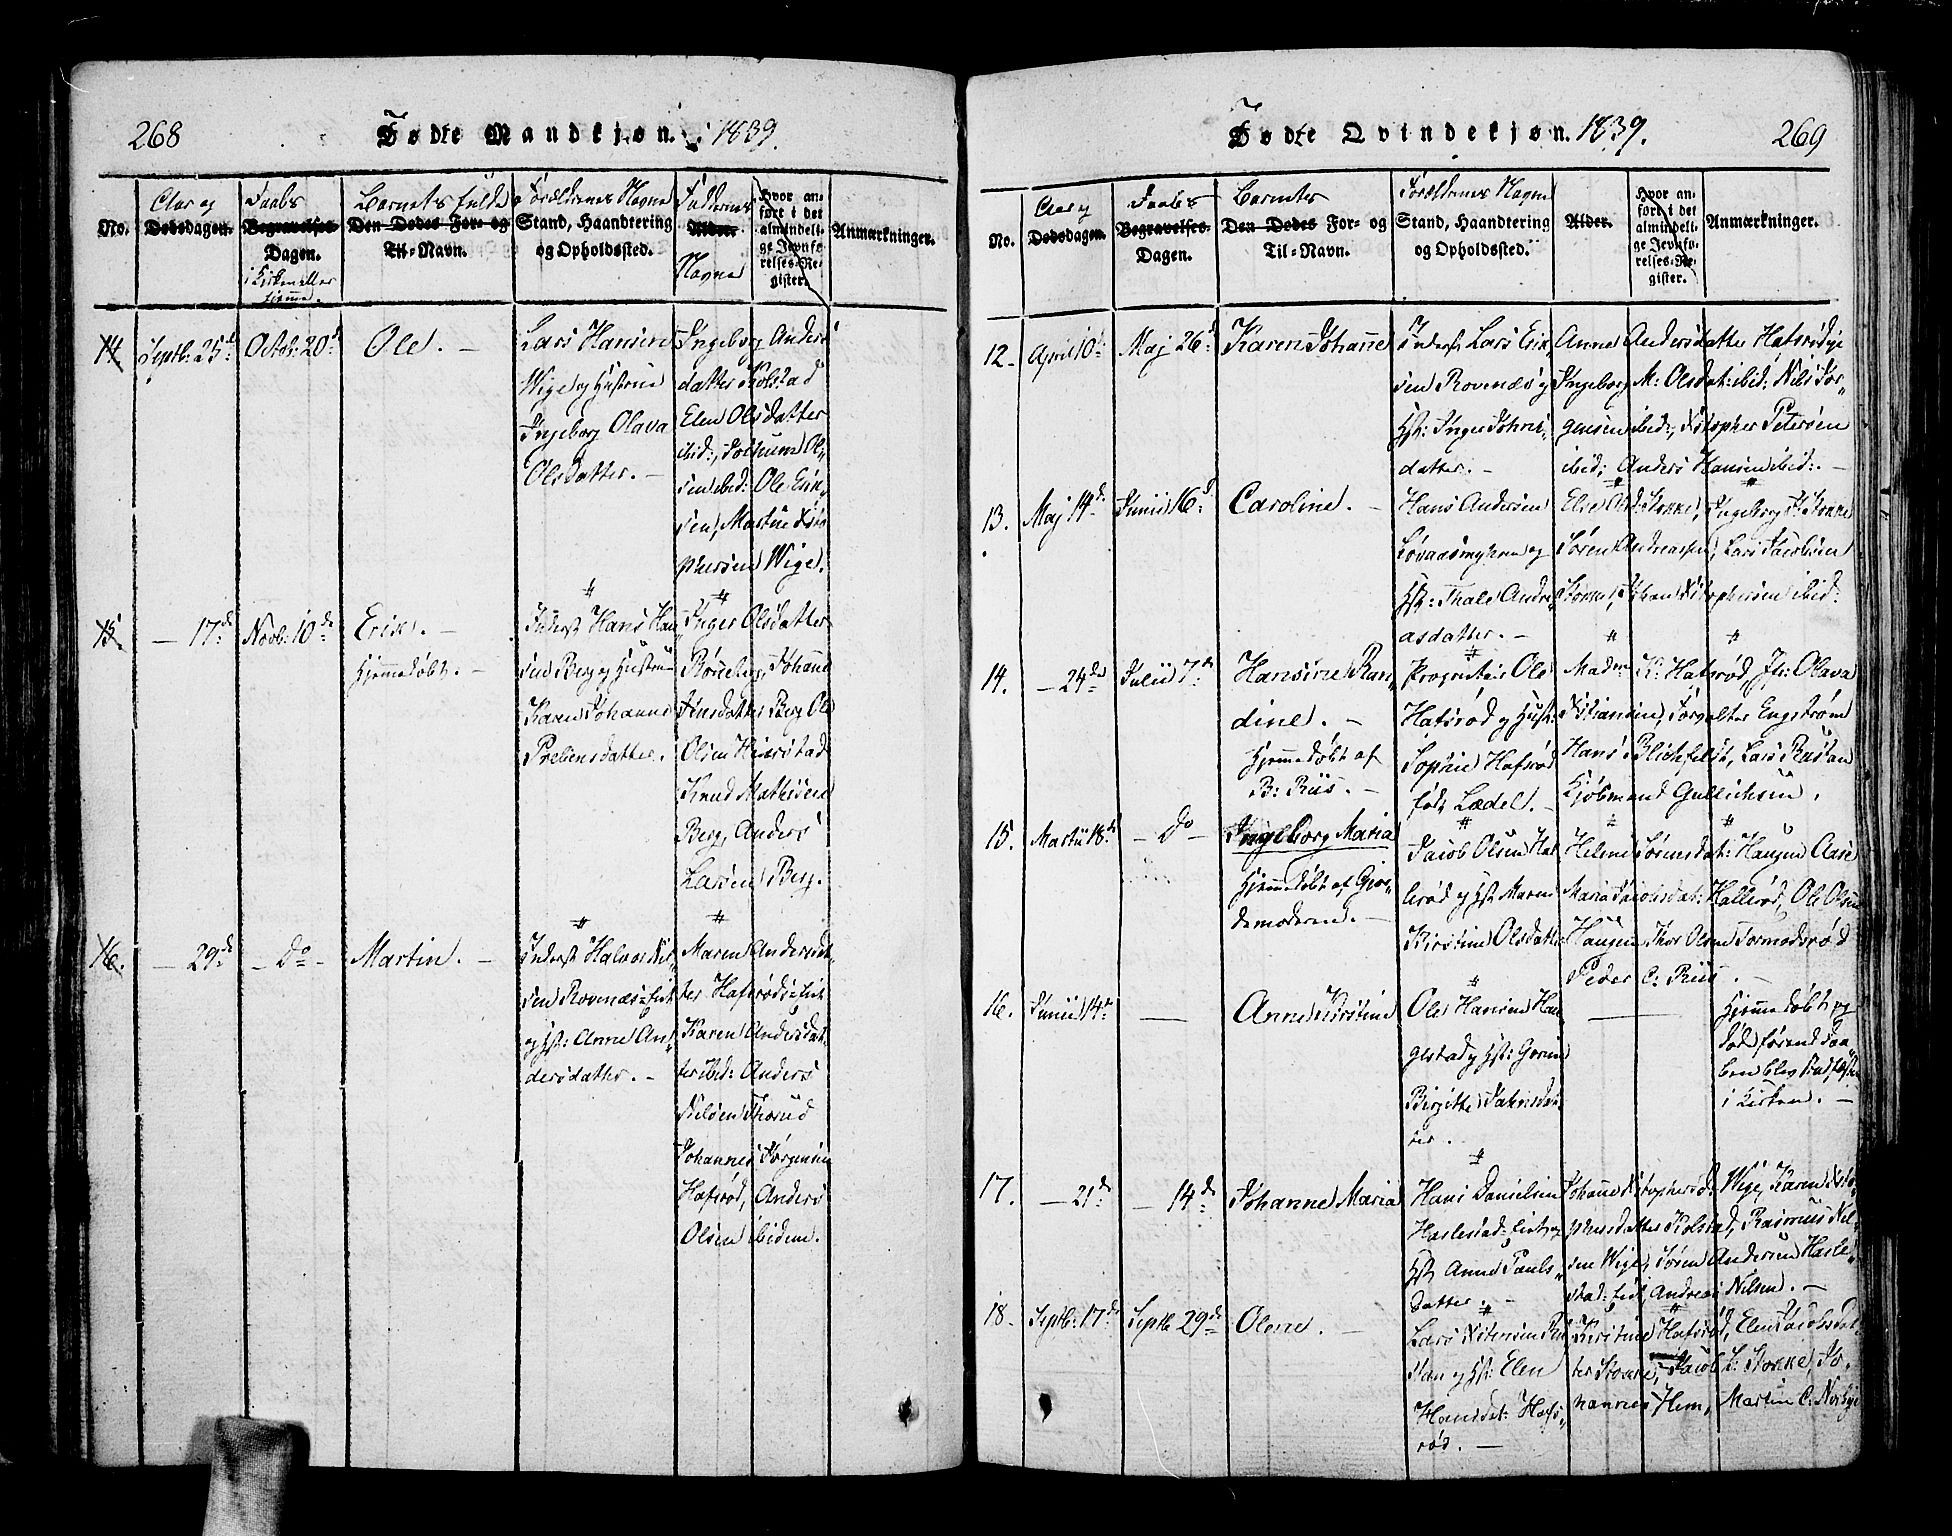 268
Fødte Mandkjøn. 1839.
No.
Aar og
Dødsdagen.
Daabs
Begravelses-
Dagen.
i Kirken eller
hjemme.
Barnets fulde
Den Dødes For- og
Til-Navn.
Forældrenes Navne
Stand, Haandtering
og Opholdssted.
Faddernes
Alder.
Navne
Hvor an-
ført i det
almindeli-
ge Jevnfø-
relses-Re-
gister.
Anmærkninger.
14
Septb: 25d
Octob: 20d
Ole. -
Lars Hansen
Wige og Hustrue
Ingeborg Olava
Olsdatter. -
Ingeborg Anders
datter Kolstad
Elen Olsdatter
ibid:, Jochum Ol,,
sen ibid: Ole Erik,,
sen, Martin Xsto
phersen Wige.
15.
- 17de
Novb: 10de
Erik. -
hjemmedøbt. -
Inderst Hans Han
sen Berg og Hustrue
Karen Johanne
Prebensdatter.
Inger Olsdatter
Rønneberg, Johanne
Jensdatter Berg Ole
Olsen
Knud Mathisen
Berg, Anders
Larsen Berg.
16.
- 29de
- Do -
Martin. -
Inderst Halvor
sen Rovenæs-Eiet
og Hst: Anne An,,
dersdatter. -
Maren Andersdat,,
ter Hafsrødseiet
Karen Andersdat,,
ter ibid: Anders
Nilsen Thorud
Johannes Jørgensen
Hafsrød, Anders
Olsen ibidem.
Fødte Qvindekjøn. 1839.
269
No.
Aar og
Dødsdagen.
Daabs
Begravelses-
Dagen.
Barnets
Den Dødes For- og
Til-Navn.
Forældrenes Navne
Stand, Haandtering
og Opholdssted.
Alder.
Hvor an-
ført i det
almindeli-
ge Jevnfø-
relses-Re-
gister.
Anmærkninger.
12.
April 10d
Maj 26d
Karen Johanne
Inderst Lars Erik,
sen Rovenæs og
Hst: Inger Johns,,
datter. -
Anne Andersdatter Hafsrødeje
Ingeborg M: Olsdat: ibid: Nils Jør,,
gensen ibid:, Xstopher Petersen
ibid; Anders Hansen ibid:. -
13.
Maj 14d
Junii 16d
Caroline. -
Hans Andersen
Løvaasmyhren og
Hst: Thale Andre
asdatter. -
Else Ols d: Stokke, Ingeborg Stokke
Søren Andreassen, Lars Jacobsen
Stokke, Johan Xstophersen ibid:
14.
- 24de
Julii 7de
Hansine Ran,,
dine. -
Hjemmedøbt af
B: Riis. -
Proprietair Ole
Hafsrød og Hust:
Sophie Hafsrød
fød Lædel. -
Madm K: Hafsrød, Jfr: Olava
Xstiansen, Forvalter Engstrøm
Hans Blichfeldt, Lars Rustan
Kjøbmand Gullichsen.
15.
Martii 18d
- Do -
Ingeborg Maria
Hjemmedøbt af Gjor,,
demoderen. -
Jacob Olsen Hal
lerød og Hst Maren
Kirstine Olsdatter
Helene Sørensdat: Haugen Aase
Maria Jacobsdat: Hallerød, Ole Olsen
Haugen Thor Olsen Tormodsrød
Peder C: Riis. -
16.
Junii 14d
-
Anne Kirstine
Ole Hansen Hau
gestad og Hst: Gorine
Birgitte Jahnsdat,
ter.
Hjemmedøbt og
død førend Daa
ben blev stadfæstet
i Kirken. -
17.
- 21de
- 14de
Johanne Maria
Hans Danielsen
Haslestad-Eiet, og
Hst Anne Pauls,,
datter. -
Johanne Xstophersd: Wige, Karen Xsto,
phersdatter Kolstad, Rasmus Nil,
sen Wige, Søren Andersen Hasle,,
stad-Eiet, Andreas Nilsen. -
18.
Septb: 17de
Septb 29de
Olene. -
Lars Xstensen Ru
stan og Hst: Elen
Hansdat: Hafs,,
rød. -
Kirstine Hafsrød, Elen Jacobsdat,
ter Stokke, Jacob L: Stokke, Jo,
hannes Hem, Martin C: Norbye